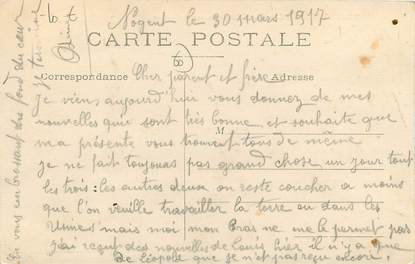 Nogent le 30 mars 1917
CARTE POSTALE
Correspondance
Adresse
Cher parent et frère
Je viens aujourd'hui vous donnez de mes
nouvelles qui sont très bonne et souhaite que
ma présente vous trouvent tous de même
je ne fait toujours pas grand chose un jour tout
les trois: les autres deux on reste coucher a moins
que l'on veuille travailler la terre ou dans les
Usines mais moi mon bras ne me le permet pas
j'ai reçut des nouvelles de Louis hier il n'y a que
de Léopold que je n'est pas reçu encore.
En vous embrassant du fond du cœur